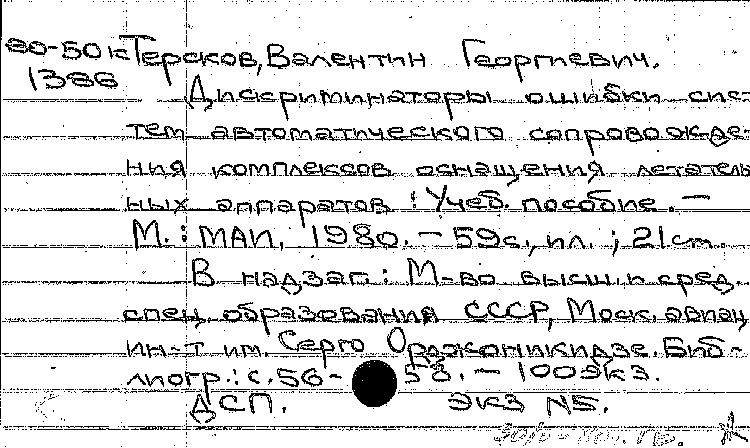 80-50к Терсков, Валентин Георгиевич.
1386
Дискриминаторы ошибки сис-
тем автоматического сопровожде-
ния комплексов оснащения летатель
ных аппаратов : Учеб. пособие. —
М. : МАИ, 1980. — 59с., ил. ; 21 см.
В надзаг.: М-во высш. и сред.
спец. образования СССР, Моск. авиац
ин-т им. Серго Орджоникидзе. Биб-
лиогр.: с. 56-58. — 100 экз.
ДСП. Экз №5.